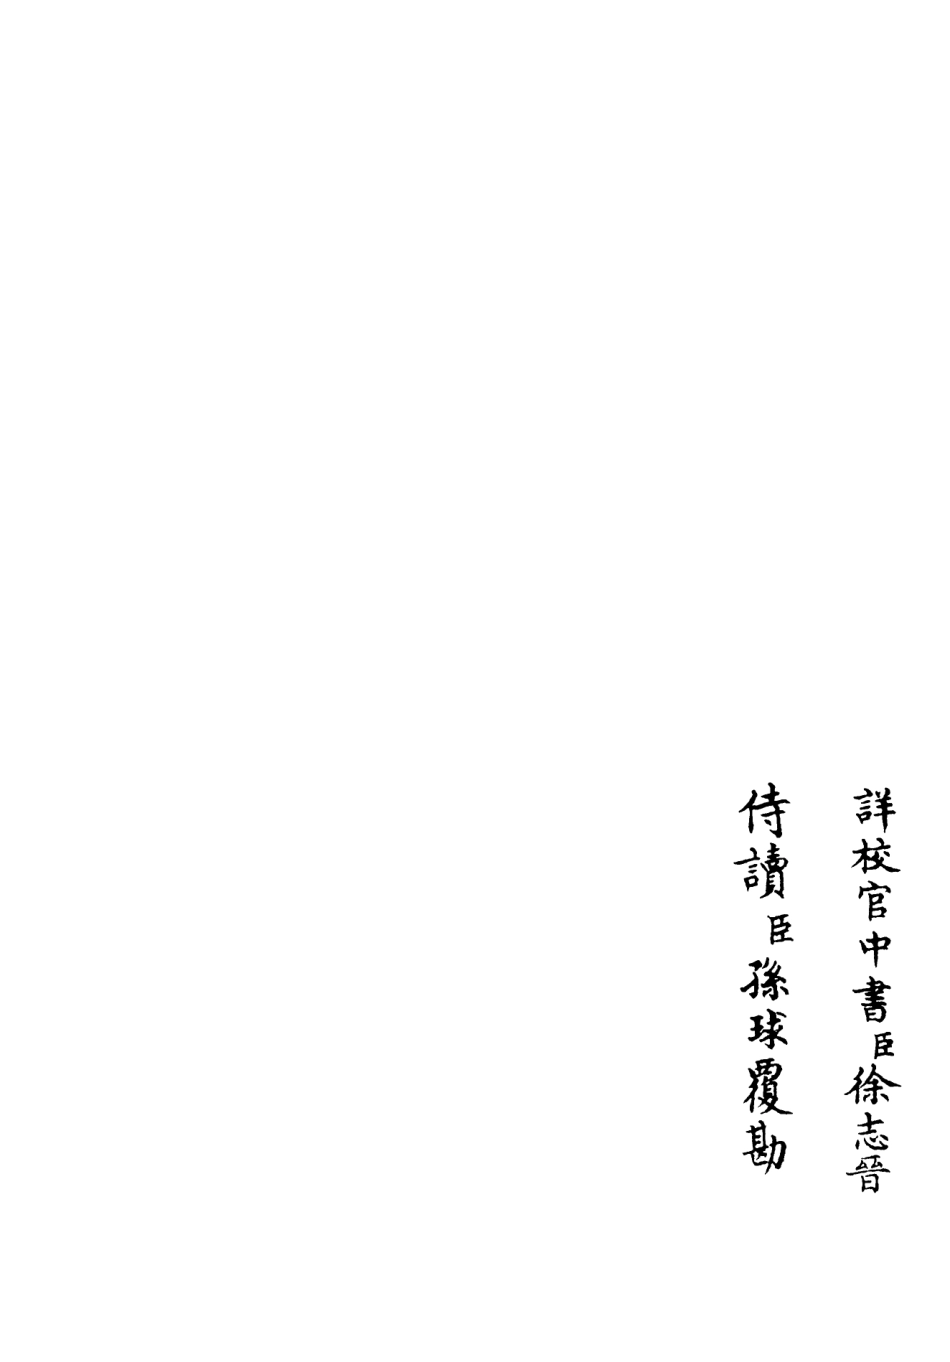 詳校官中書臣徐志晉
侍讀臣孫球覆勘